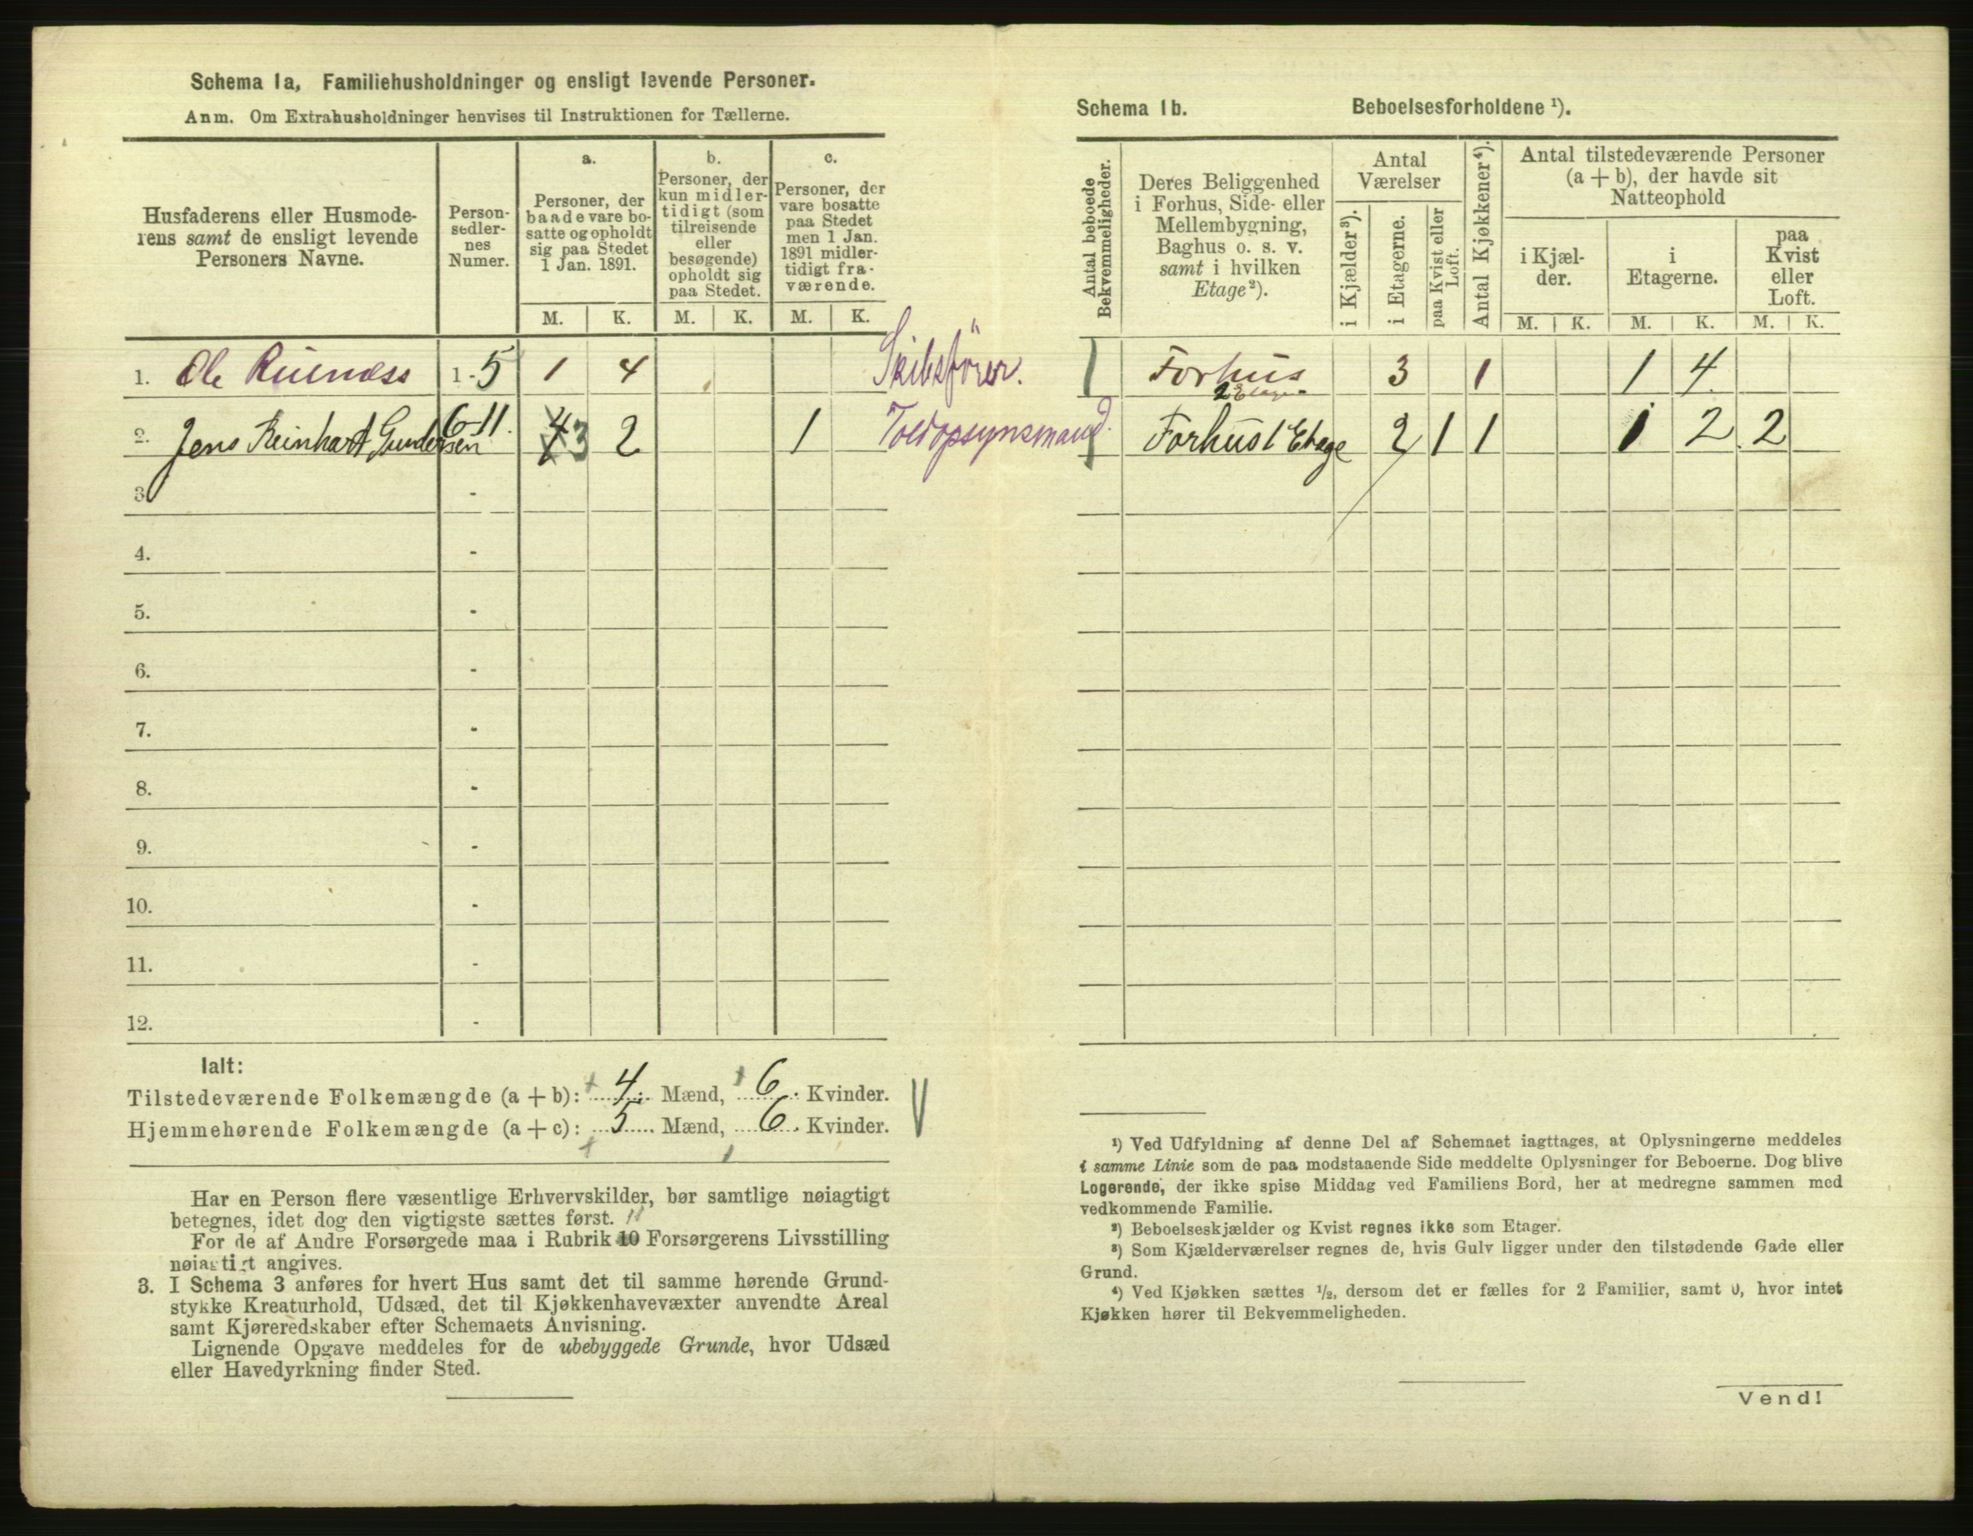 Schema 1a, Familiehusholdninger og ensligt levende Personer.
Anm. Om Extrahusholdninger henvises til Instruktionen for Tællerne.
Husfaderens eller Husmode-
rens samt de ensligt levende
Personers Navne.
Person-
sedler-
nes
Numer.
a.
Personer, der
baade vare bo-
satte og opholdt
sig paa Stedet
1 Jan. 1891.
b.
Personer, der
kun midler-
tidigt (som
tilreisende
eller
besøgende)
opholdt sig
paa Stedet.
c.
Personer, der
vare bosatte
paa Stedet
men 1 Jan.
1891 midler-
tidigt fra-
værende.
M. K. M. K. M. K.
1. Ole 1 - 5 1 4 Skibsfører.
2. Jens Reinhart Gundersen 6-11. 4 3 2 1 Toldopsynsmand.
3. -
4. -
5. -
6. -
7. -
8. -
9. -
10. -
11. -
12. -
Ialt:
Tilstedeværende Folkemængde (a + b): 4 Mænd, 6 Kvinder.
Hjemmehørende Folkemængde (a + c): 5 Mænd, 6 Kvinder.
Har en Person flere væsentlige Erhvervskilder, bør samtlige nøiagtigt
betegnes, idet dog den vigtigste sættes først.
For de af Andre Forsørgede maa i Rubrik 10 Forsørgerens Livsstilling
nøiagtigt angives.
3. I Schema 3 anføres for hvert Hus samt det til samme hørende Grund-
stykke Kreaturhold, Udsæd, det til Kjøkkenhavevæxter anvendte Areal
samt Kjøreredskaber efter Schemaets Anvisning.
Lignende Opgave meddeles for de ubebyggede Grunde, hvor Udsæd
eller Havedyrkning finder Sted.
Schema 1b. Beboelsesforholdene ¹).
Antal beboede
Bekvemmeligheder.
Deres Beliggenhed
i Forhus, Side- eller
Mellembygning,
Baghus o. s. v.
samt i hvilken
Etage²).
Antal
Værelser
i Kjælder³).
i Etagerne.
paa Kvist eller
Loft.
Antal Kjøkkener⁴).
Antal tilstedeværende Personer
(a + b), der havde sit
Natteophold
i Kjæl-
der.
i
Etagerne.
paa
Kvist
eller
Loft.
M. K. M. K. M. K.
1 Forhus 3 1 1 4
2 Etage
1 Forhus 1 Etage 2 1 1 1 2 2
¹) Ved Udfyldning af denne Del af Schemaet iagttages, at Oplysningerne meddeles
i samme Linie som de paa modstaaende Side meddelte Oplysninger for Beboerne. Dog blive
Logerende, der ikke spise Middag ved Familiens Bord, her at medregne sammen med
vedkommende Familie.
²) Beboelseskjælder og Kvist regnes ikke som Etager.
³) Som Kjælderværelser regnes de, hvis Gulv ligger under den tilstødende Gade eller
Grund.
⁴) Ved Kjøkken sættes ½, dersom det er fælles for 2 Familier, samt 0, hvor intet
Kjøkken hører til Bekvemmeligheden.
Vend!